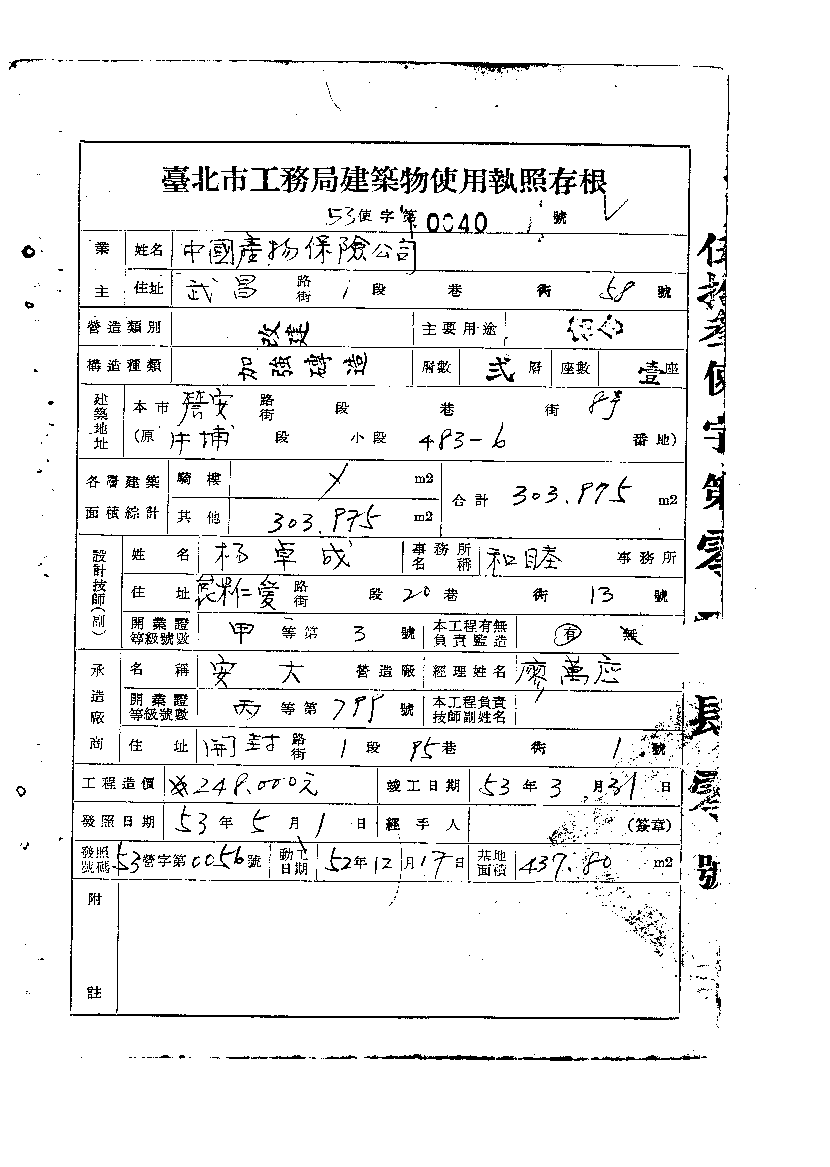 臺北市工務局建築物使用執照存根
53使字第0040號
業主 姓名 中國產物保險公司
住址 武昌 路街 1段 巷 街 58 號
營造類別 改建 主要用途
構造種類 加強磚造 層數 弍層 座數 壹座
建築地址 本市 路街 段 巷 街 8号
(原 段 小段 483-6 番地)
各層建築面積綜計 騎樓 m2 合計 303.975 m2
其他 303.975 m2
設計技師(副) 姓名 楊卓成 事務所名稱 和睦 事務所
住址 仁愛 路街 段 20巷 街 13 號
開業證等級號數 甲 等第 3 號 本工程有無負責監造 有 無
承造廠商 名稱 安大 營造廠 經理姓名 廖萬
開業證等級號數 丙 等第 799 號 本工程負責技師副姓名
住址 開封 路街 1段 95巷 街 1號
工程造價 248.000元 竣工日期 53年3月31日
發照日期 53年5月1日 經手人 (簽章)
發照號碼 53營字第0056號 動工日期 52年12月17日 基地面積 437.80 m2
附註
伍拾叁使字第零 肆零號